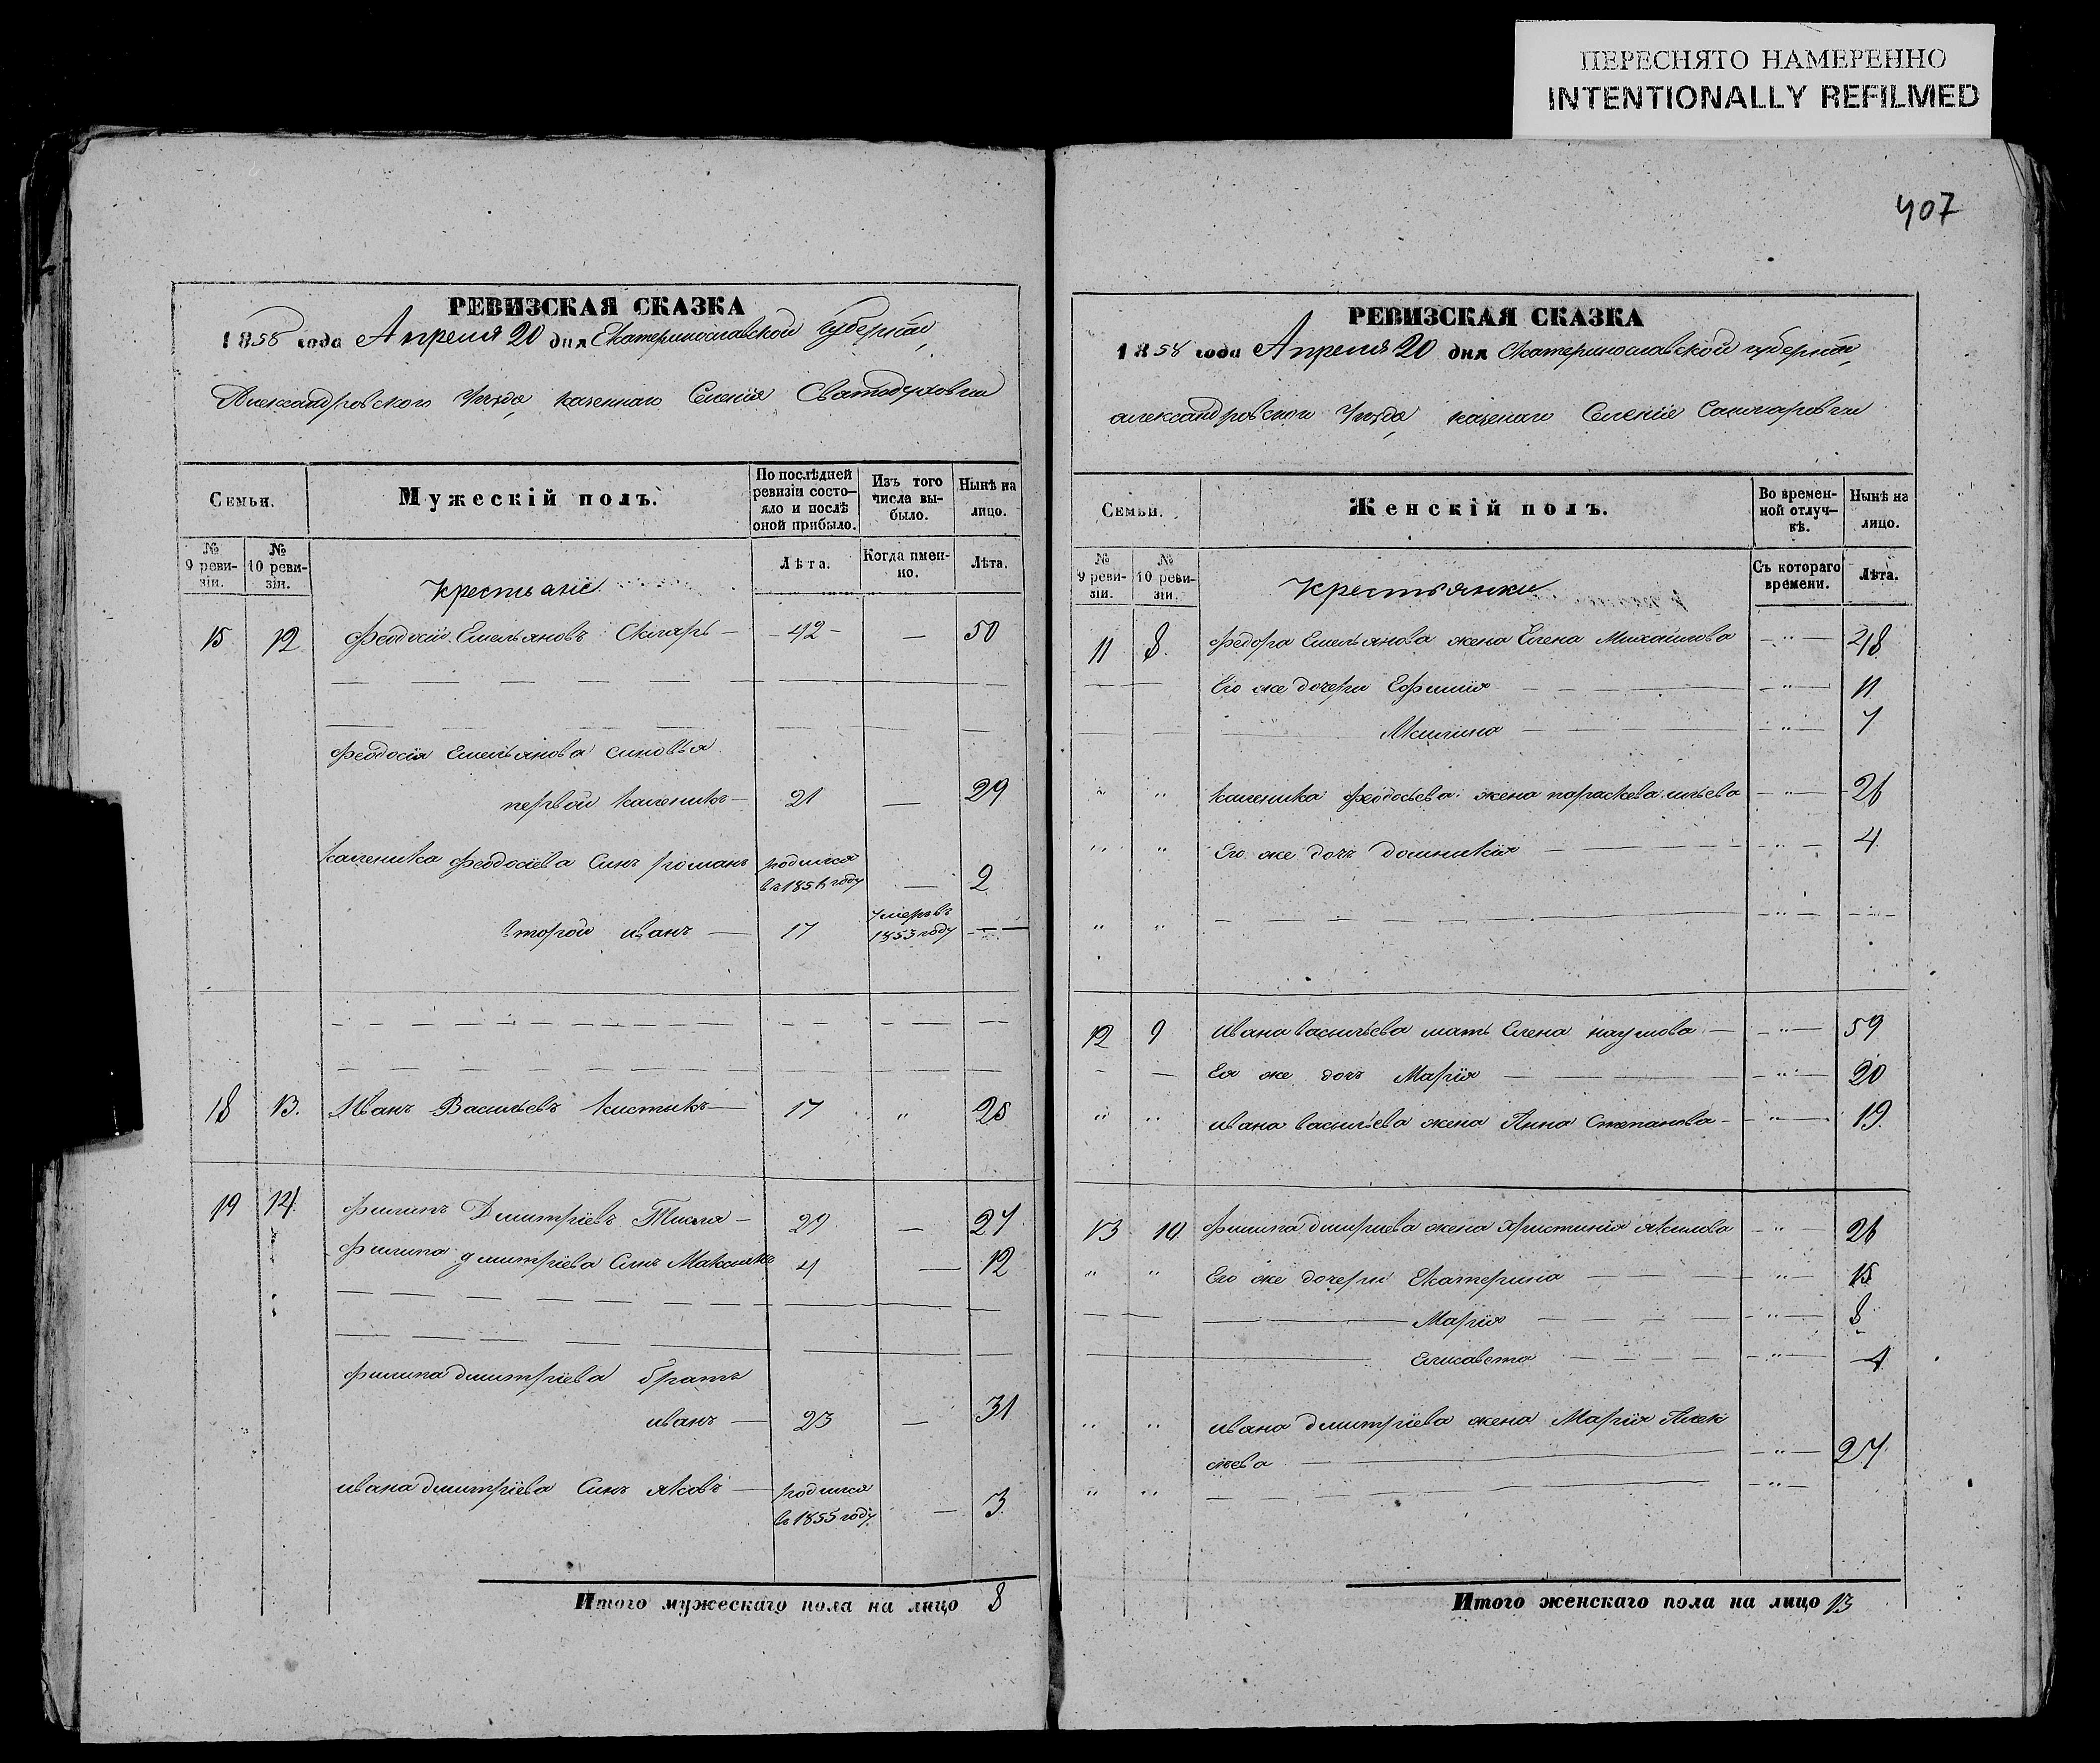 ПЕРЕСНЯТО НАМЕРЕННО
INTENTIONALLY REFILMED
407
РЕВИЗСКАЯ СКАЗКА
1858 года Апреля 20 дня Екатеринославской губернии,
Александровского Уѣзда, казеннаго Селенія Святодуховки
Семьи.
Мужескій полъ.
По послѣдней ревизіи состо-
яло и послѣ
оной прибыло.
Изъ того
числа вы-
было.
Нынѣ на
лицо.
№
9 реви-
зіи.
№
10 реви-
зіи.
Лѣта.
Когда имен-
но.
Лѣта.
Крестьяне
15 12 Феодосій Емельяновъ Скляръ — 42 — — 50
Феодосія Емельянова синовья
первой Каленикъ — 21 — 29
Каленика Феодосіева Синъ романъ родился
въ 1856 году — 2
второй иванъ — 17 Умеръ въ
1853 году — —
18 13. Иванъ Васильевъ Кистикъ — 17 " 25
19 14. Филипъ Дмитріевъ Тисля — 29 — 27
Филипа дмитріева Синъ Максимъ 4 — 12
Филипа дмитріева братъ
иванъ — 23 — 31
ивана дмитріева Синъ яковъ — родился
въ 1855 году. — 3
Итого мужескаго пола на лицо 8
РЕВИЗСКАЯ СКАЗКА
1858 года Апреля 20 дня Екатеринославской губерніи,
александровского Уѣзда, казенаго Селеніе
Семьи.
Женскій полъ.
Во времен-
ной отлуч-
кѣ.
Нынѣ на
лицо.
№
9 реви-
зіи.
№
10 реви-
зіи.
Съ котораго
времени.
Лѣта.
Крестьянки
11 8. Федора Емельянова жена Елена Михайлова — " — 48
Его же дочери Ефимия — " — 11
Акилина — " — 7
" " Каленика Феодосьева жена параскева ильева — " — 26
" " Его же дочъ домникія — " — 4
" " — " —
12 9 ивана васильева мать Елена наумова — — " — 59
Ея же дочъ Марія — " — 20
" " ивана васильева жена Анна Степанова — — " — 19.
13 10. Филипа дмитриева жена Христинія якимова — " — 26
" " Его же дочери Екатерина — " — 15
Марія — " — 8
Елисавета — " — 4
" " ивана дмитріева жена Марія Алек
сіева — " — 27
" " — " —
Итого женскаго пола на лицо 13